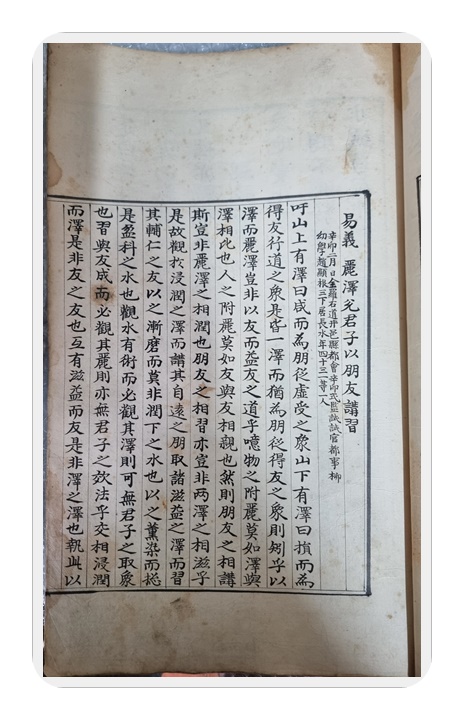 易義 麗澤兌君子以朋友講習
辛卯二月 日全羅右道井邑縣都會辛卯式監試試官都事柳
幼學趙顯根三下居長水年四十三一等一人
吁山上有澤曰咸而為朋從虛受之象山下有澤曰損而為
得友行道之象是皆一澤而猶為朋從得友之象則矧乎以
澤而麗澤豈非以友而益友之道乎噫物之附麗莫如澤與
澤相比也人之附麗莫如友與友相親也然則朋友之相講
斯豈非麗澤之相潤也朋友之相習亦豈非两澤之相滋乎
是故觀於浸潤之澤而講其自遠之朋取諸滋益之澤而習
其輔仁之友以之漸磨而莫非潤下之水也以之薰染而
是盈科之水也觀水有術而必觀其澤則可無君子之取象
也習與友成而必觀其麗則亦無君子之效法乎交相浸潤
而澤是非友之友也互有滋益而友是非澤之澤也孰此以